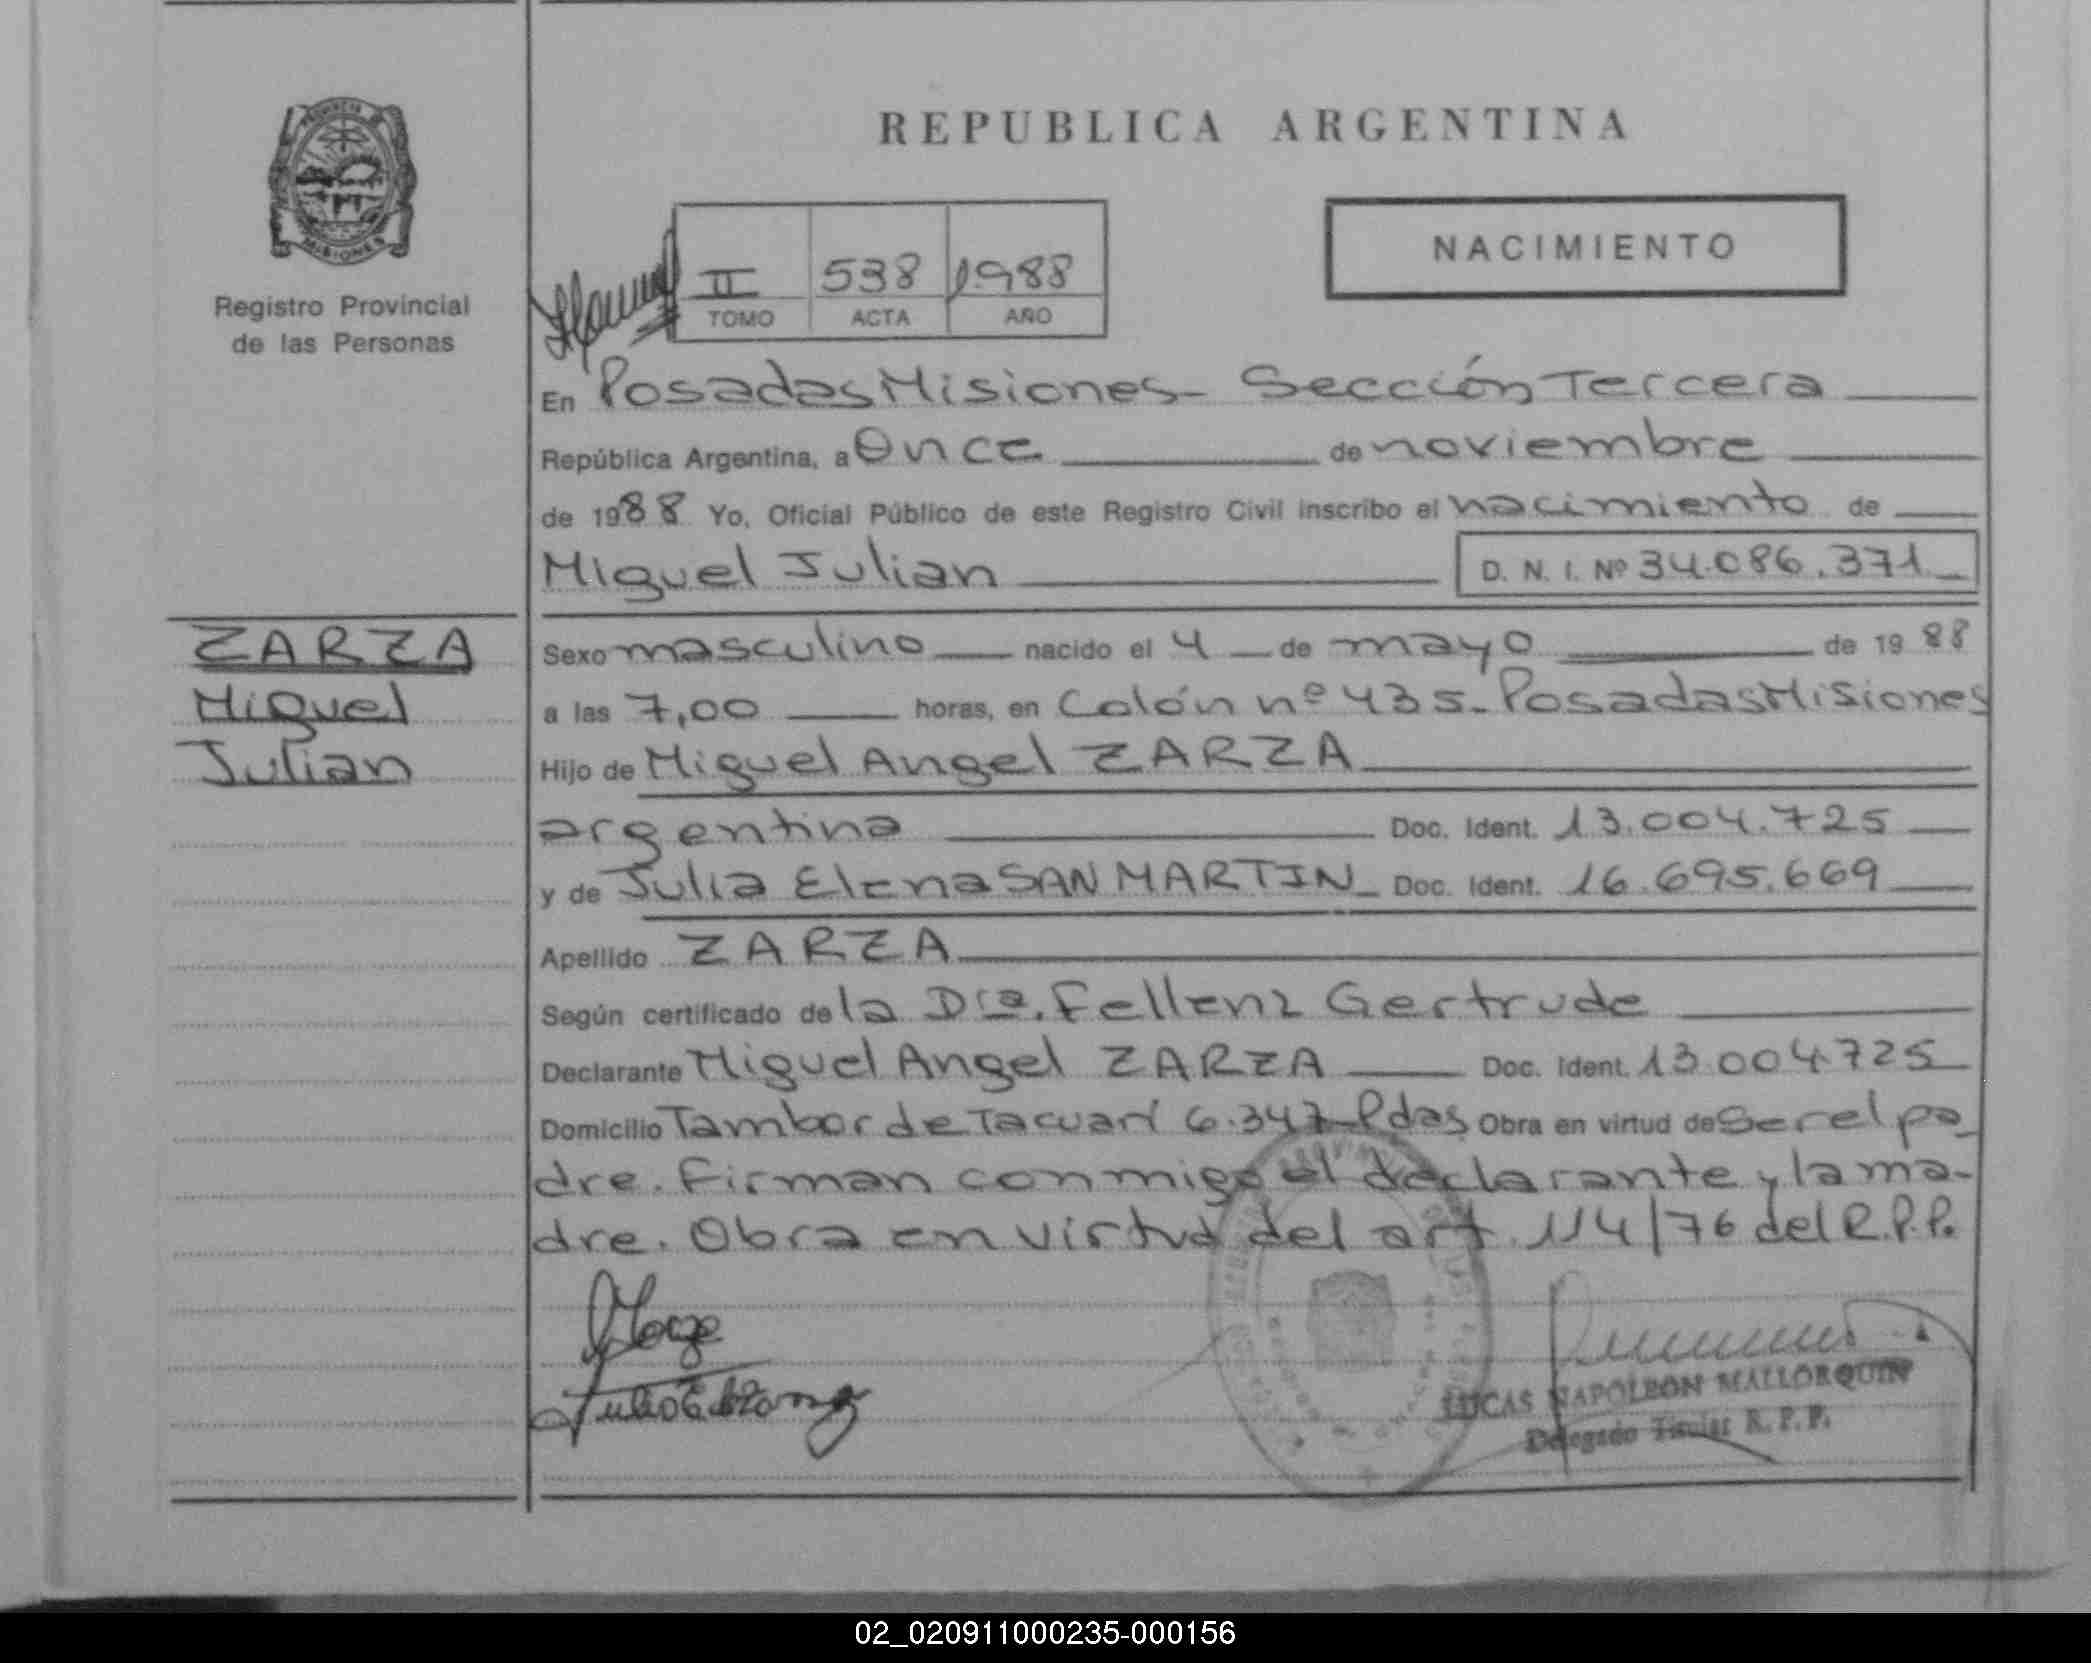 PROVINCIA DE
MISIONES
Registro Provincial
de las Personas
REPUBLICA ARGENTINA
NACIMIENTO
II 538 1988
TOMO ACTA AÑO
En Posadas Misiones- Sección Tercera
República Argentina, a Once de noviembre
de 1988 Yo, Oficial Público de este Registro Civil inscribo el nacimiento de
Miguel Julian D. N. I. Nº 34.086.371
ZARZA
Miguel
Julian
Sexo masculino nacido el 4 de mayo de 1988
a las 7,00 horas, en Colón nº 435- Posadas Misiones
Hijo de Miguel Angel ZARZA
argentina Doc. Ident. 13.004.725
y de Julia Elena SAN MARTIN Doc. Ident. 16.695.669
Apellido ZARZA
Según certificado de la Dra. Fellenz Gertrude
Declarante Miguel Angel ZARZA Doc. Ident. 13.004.725
Domicilio Tambor de Tacuarí 6.347-Pdas Obra en virtud de ser el pa-
dre. Firman conmigo el declarante y la ma-
dre. Obra en virtud del art. 114/76 del R.P.P.
LUCAS NAPOLEON MALLORQUIN
Delegado Titular R. P. P.
02_020911000235-000156